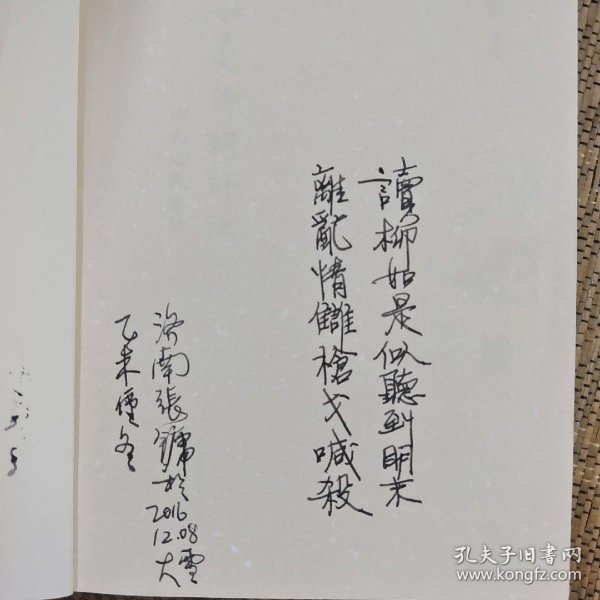 讀柳如是似聽到明末
離亂情讎槍戈喊殺
洛南張鏞於
2016
12.08
大雪
乙未僅冬
孔夫子旧书网
www.kongfz.com